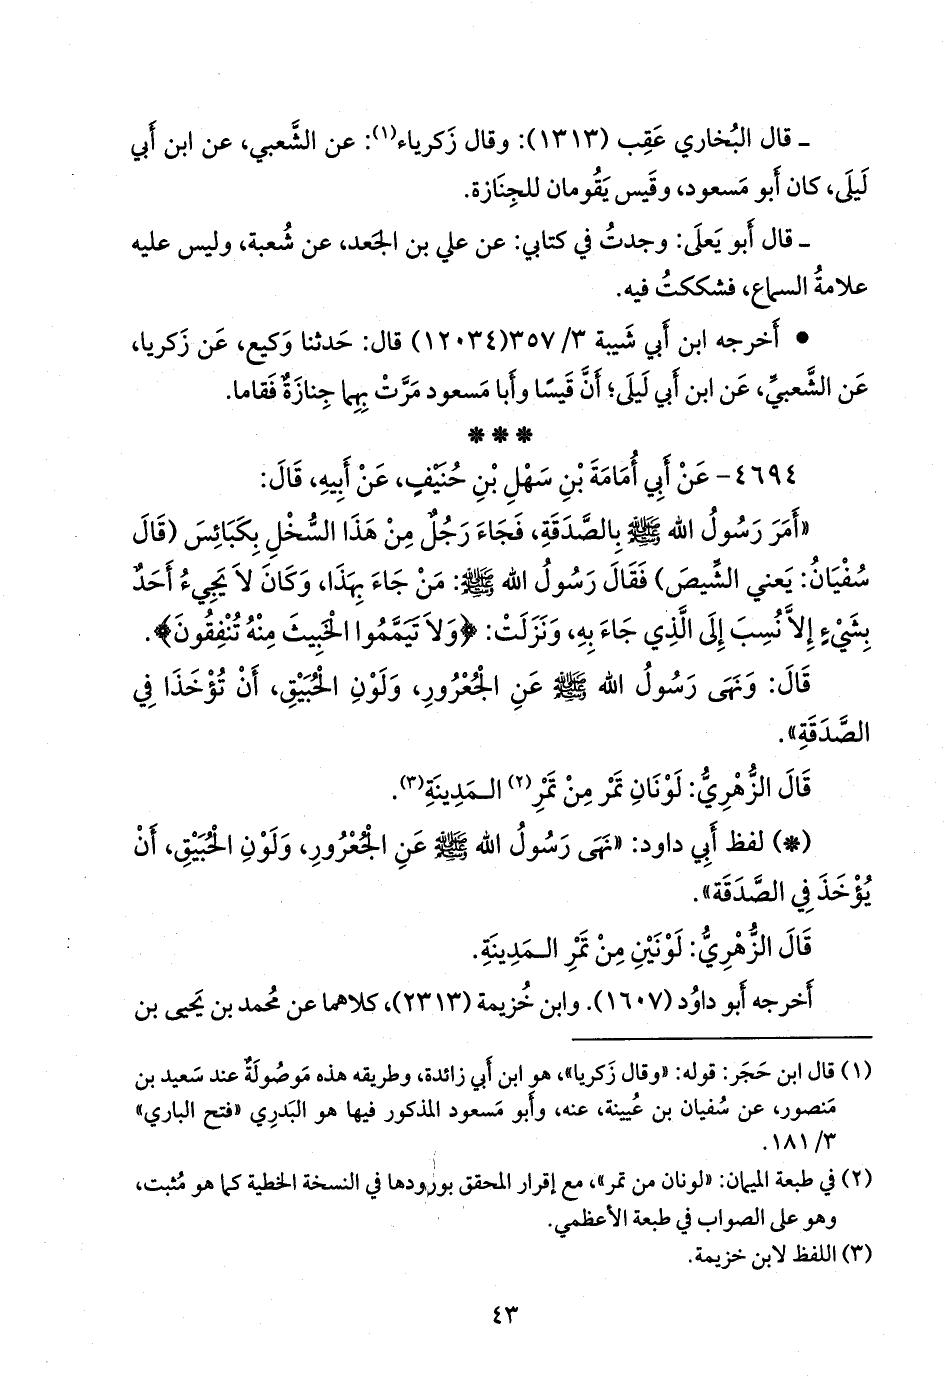 ـ قال البُخاري عَقِب (١٣١٣): وقال زَكرياء(١): عن الشَّعبي، عن ابن أَبي
لَيلَى، كان أَبو مَسعود، وقَيس يَقُومان للجِنَازة.
ـ قال أَبو يَعلَى: وجدتُ في كتابي: عن علي بن الجَعد، عن شُعبة، وليس عليه
علامةُ السماع، فشككتُ فيه.
• أَخرجه ابن أَبي شَيبة ٣/ ٣٥٧(١٢٠٣٤) قال: حَدثنا وَكيع، عَن زَكريا،
عَن الشَّعبيِّ، عَن ابن أَبي لَيلى؛ أَنَّ قَيسًا وأَبا مَسعود مَرَّتْ بِهِما جِنازَةٌ فَقاما.
* * *
٤٦٩٤- عَنْ أَبِي أُمَامَةَ بْنِ سَهْلِ بْنِ حُنَيْفٍ، عَنْ أَبِيهِ، قَالَ:
«أَمَرَ رَسُولُ الله ﷺ بِالصَّدَقَةِ، فَجَاءَ رَجُلٌ مِنْ هَذَا السُّخْلِ بِكَبَائِسَ (قَالَ
سُفْيَانُ: يَعني الشِّيصَ) فَقَالَ رَسُولُ الله ﷺ: مَنْ جَاءَ بِهَذَا، وَكَانَ لاَ يَجِيءُ أَحَدٌ
بِشَيْءٍ إِلاَّ نُسِبَ إِلَى الَّذِي جَاءَ بِهِ، وَنَزَلَتْ: ﴿وَلاَ تَيَمَّمُوا الْخَبِيثَ مِنْهُ تُنْفِقُونَ﴾.
قَالَ: وَنَهَى رَسُولُ الله ﷺ عَنِ الْجُعْرُورِ، وَلَوْنِ الْحُبَيْقِ، أَنْ تُؤْخَذَا فِي
الصَّدَقَةِ».
قَالَ الزُّهْرِيُّ: لَوْنَانِ تَمْر مِنْ تَمْرِ(٢) الـمَدِينَةِ(٣).
(*) لفظ أَبي داود: «نَهَى رَسُولُ الله ﷺ عَنِ الْجُعْرُورِ، وَلَوْنِ الْحُبَيْقِ، أَنْ
يُؤْخَذَ فِي الصَّدَقَة».
قَالَ الزُّهْرِيُّ: لَوْنَيْنِ مِنْ تَمْرِ الـمَدِينَةِ.
أَخرجه أَبو داوُد (١٦٠٧). وابن خُزيمة (٢٣١٣)، كلاهما عن مُحمد بن يَحيى بن
(١) قال ابن حَجَر: قوله: «وقال زَكريا»، هو ابن أَبي زائدة، وطريقه هذه مَوصُولَةٌ عند سَعيد بن
مَنصور، عن سُفيان بن عُيينة، عنه، وأَبو مَسعود المذكور فيها هو البَدرِي «فتح الباري»
٣/ ١٨١.
(٢) في طبعة الميمان: «لونان من تمر»، مع إقرار المحقق بورودها في النسخة الخطية كما هو مُثبت،
وهو على الصواب في طبعة الأعظمي.
(٣) اللفظ لابن خزيمة.
٤٣